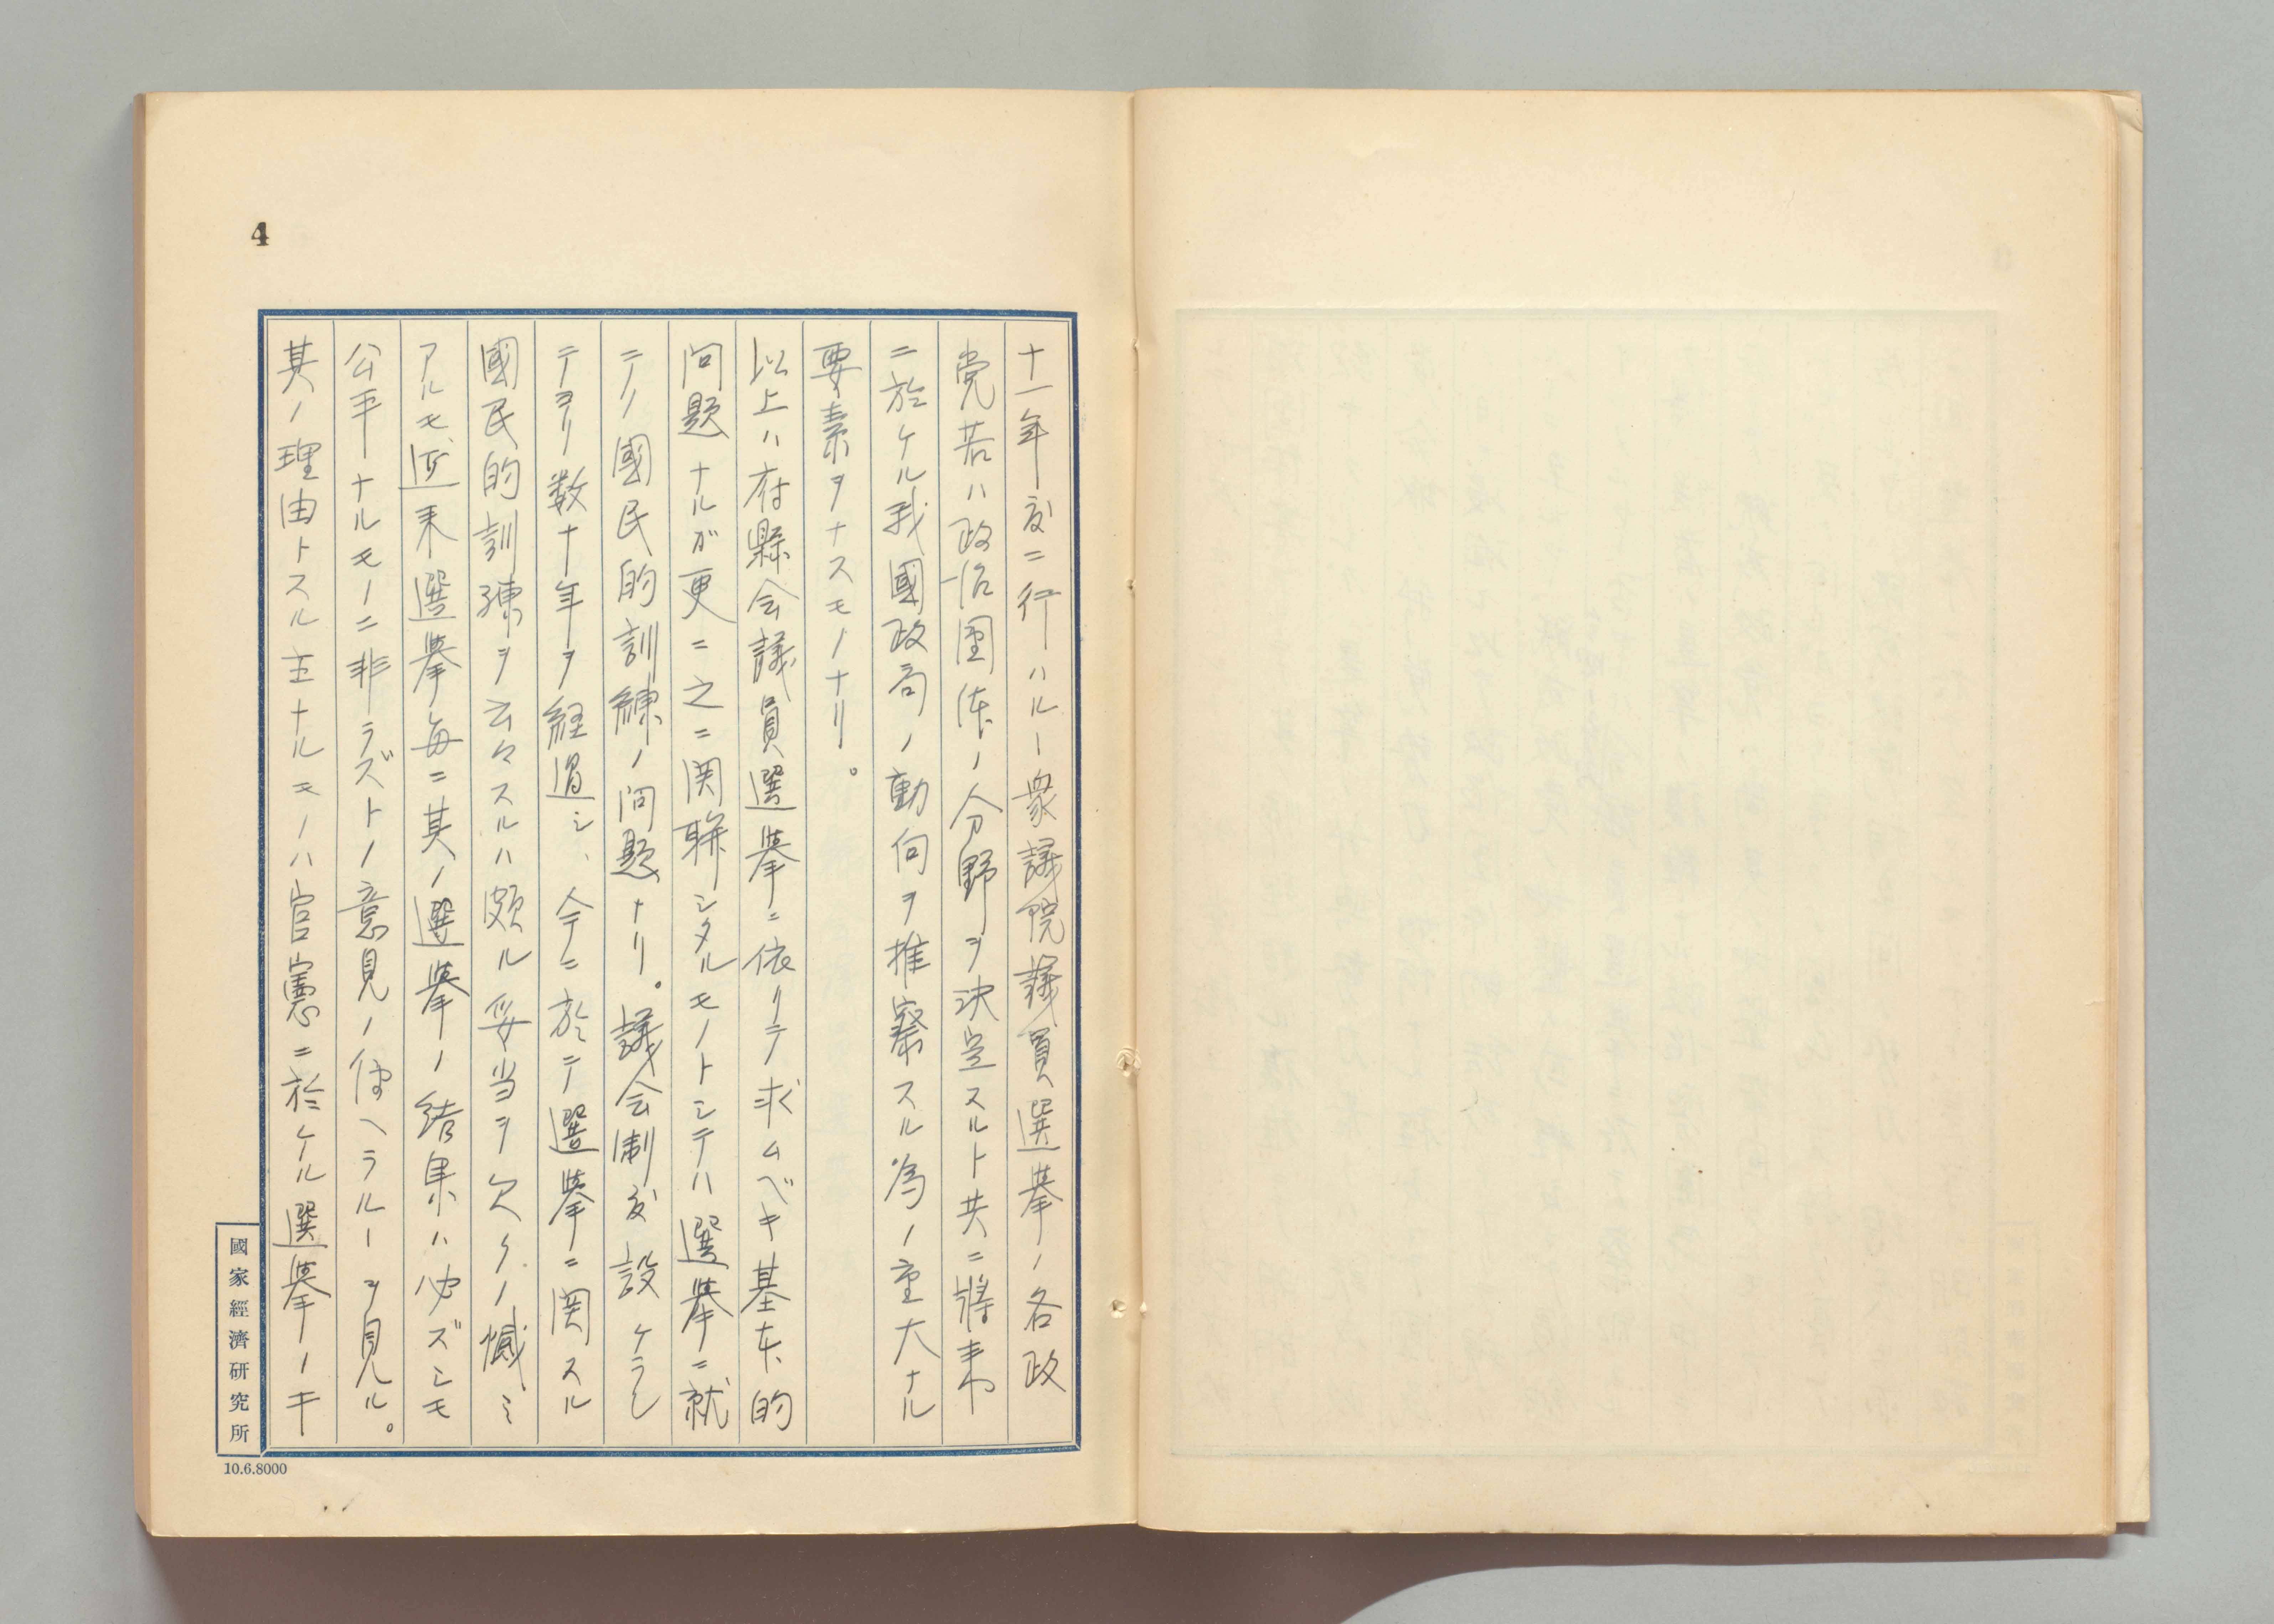 4
十一年度ニ行ハルー衆議院議員選挙ノ各政
党若ハ政治團体ノ分野ヲ決定スルト共ニ將来
ニ於ケル我國政局ノ動向ヲ推察スル為ノ重大ナル
要素ヲナスモノナリ。
以上ハ府縣会議員選挙ニ依リテ求ムベキ基本的
問題ナルガ更ニ之ニ関聯シタルモノトシテハ選挙ニ就
テノ國民的訓練ノ問題ナリ。議会制度設ケラレ
テヨリ数十年ヲ経過シ、今ニ於テ選挙ニ関スル
國民的訓練ヲ云々スルハ頗ル妥当ヲ欠クノ憾ミ
アルモ、近来選挙毎ニ其ノ選挙ノ結果ハ必ズシモ
公平ナルモノニ非ラズトノ意見ノ伝ヘラルーヲ見ル。
其ノ理由トスル主ナルモノハ官憲ニ於ケル選挙ノキ
國家經濟研究所
10.6.8000